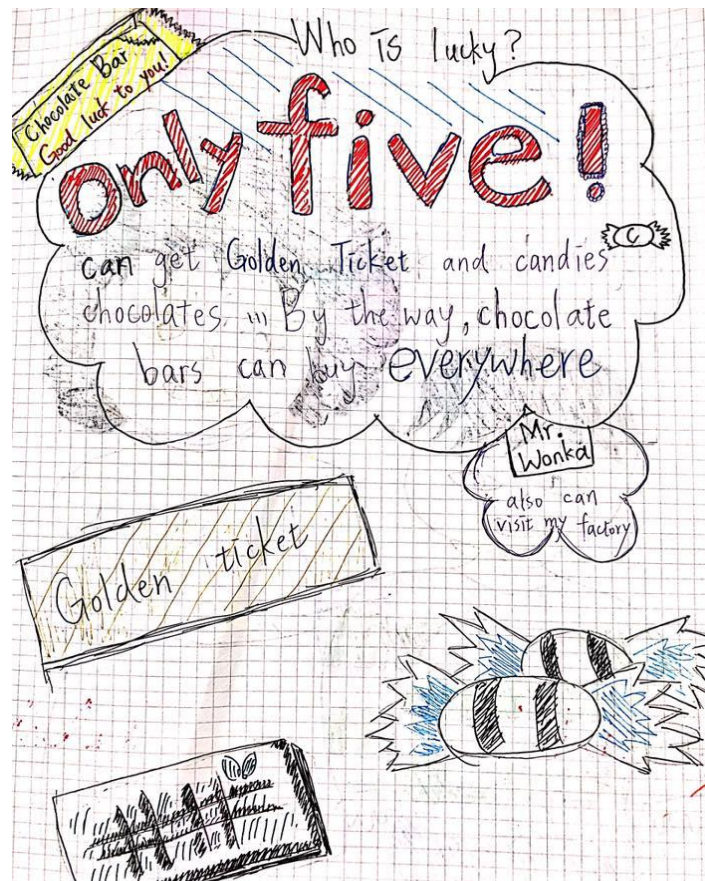 Who is lucky?
Chocolate Bar
Good luck to you!
only five!
can get Golden Ticket and candies
C
chocolates ... By the way, chocolate
bars can buy everywhere
Mr.
Wonka
also can
visit my factory
Golden ticket